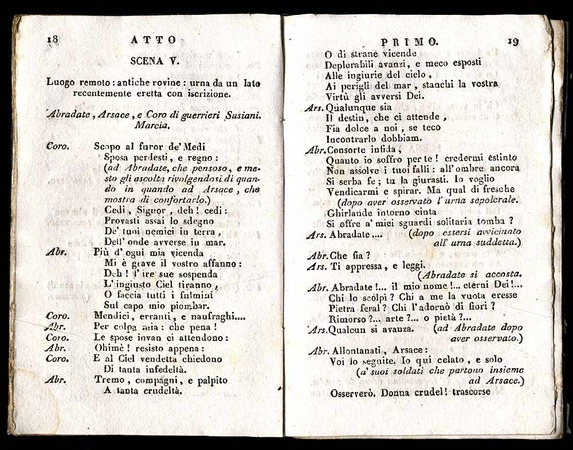 18 ATTO
SCENA V.
Luogo remoto: antiche rovine: urna da un lato
recentemente eretta con iscrizione.
Abradate, Arsace, e Coro di guerrieri Susiani.
Marcia.
Coro. Scopo al furor de' Medi
Sposa perdesti, e regno:
(ad Abradate, che pensoso, e me-
sto gli ascolta rivolgendosi di quan-
do in quando ad Arsace, che
mostra di confortarlo.)
Cedi, Signor, deh! cedi:
Provasti assai lo sdegno
De' tuoi nemici in terra,
Dell' onde avverse in mar.
Abr. Più d'ogni mia vicenda
Mi è grave il vostro affanno:
Deh! l'ire sue sospenda
L'ingiusto Ciel tiranno,
O faccia tutti i fulmini
Sul capo mio piombar.
Coro. Mendici, erranti, e naufraghi....
Abr. Per colpa mia: che pena!
Coro. Le spose invan ci attendono:
Abr. Ohimè! resisto appena:
Coro. E al Ciel vendetta chiedono
Di tanta infedeltà.
Abr. Tremo, compagni, e palpito
A tanta crudeltà.
PRIMO. 19
O di strane vicende
Deplorabili avanzi, e meco esposti
Alle ingiurie del cielo,
Ai perigli del mar, stanchi la vostra
Virtù gli avversi Dei.
Ars. Qualunque sia
Il destin, che ci attende,
Fia dolce a noi, se teco
Incontrarlo dobbiam.
Abr. Consorte infida,
Quanto io soffro per te! credermi estinto
Non assolve i tuoi falli: all'ombre ancora
Si serba fe; tu la giurasti. Io voglio
Vendicarmi e spirar. Ma qual di fresche
(dopo aver osservato l'urna sepolcrale.
Ghirlande intorno cinta
Si offre a'miei sguardi solitaria tomba?
Ars. Abradate.... (dopo essersi avvicinato
all'urna suddetta.)
Abr. Che fia?
Ars. Ti appressa, e leggi.
(Abradate si accosta.
Abr. Abradate!... il mio nome!... eterni Dei!...
Chi lo scolpì? Chi a me la vuota eresse
Pietra feral? Chi l'adornò di fiori?
Rimorso?... arte?... o pietà?...
Ars. Qualcun si avanza. (ad Abradate dopo
aver osservato.)
Abr. Allontanati, Arsace:
Voi lo seguite. Io qui celato, e solo
(a'suoi soldati che partono insieme
ad Arsace.)
Osserverò. Donna crudel! trascorse